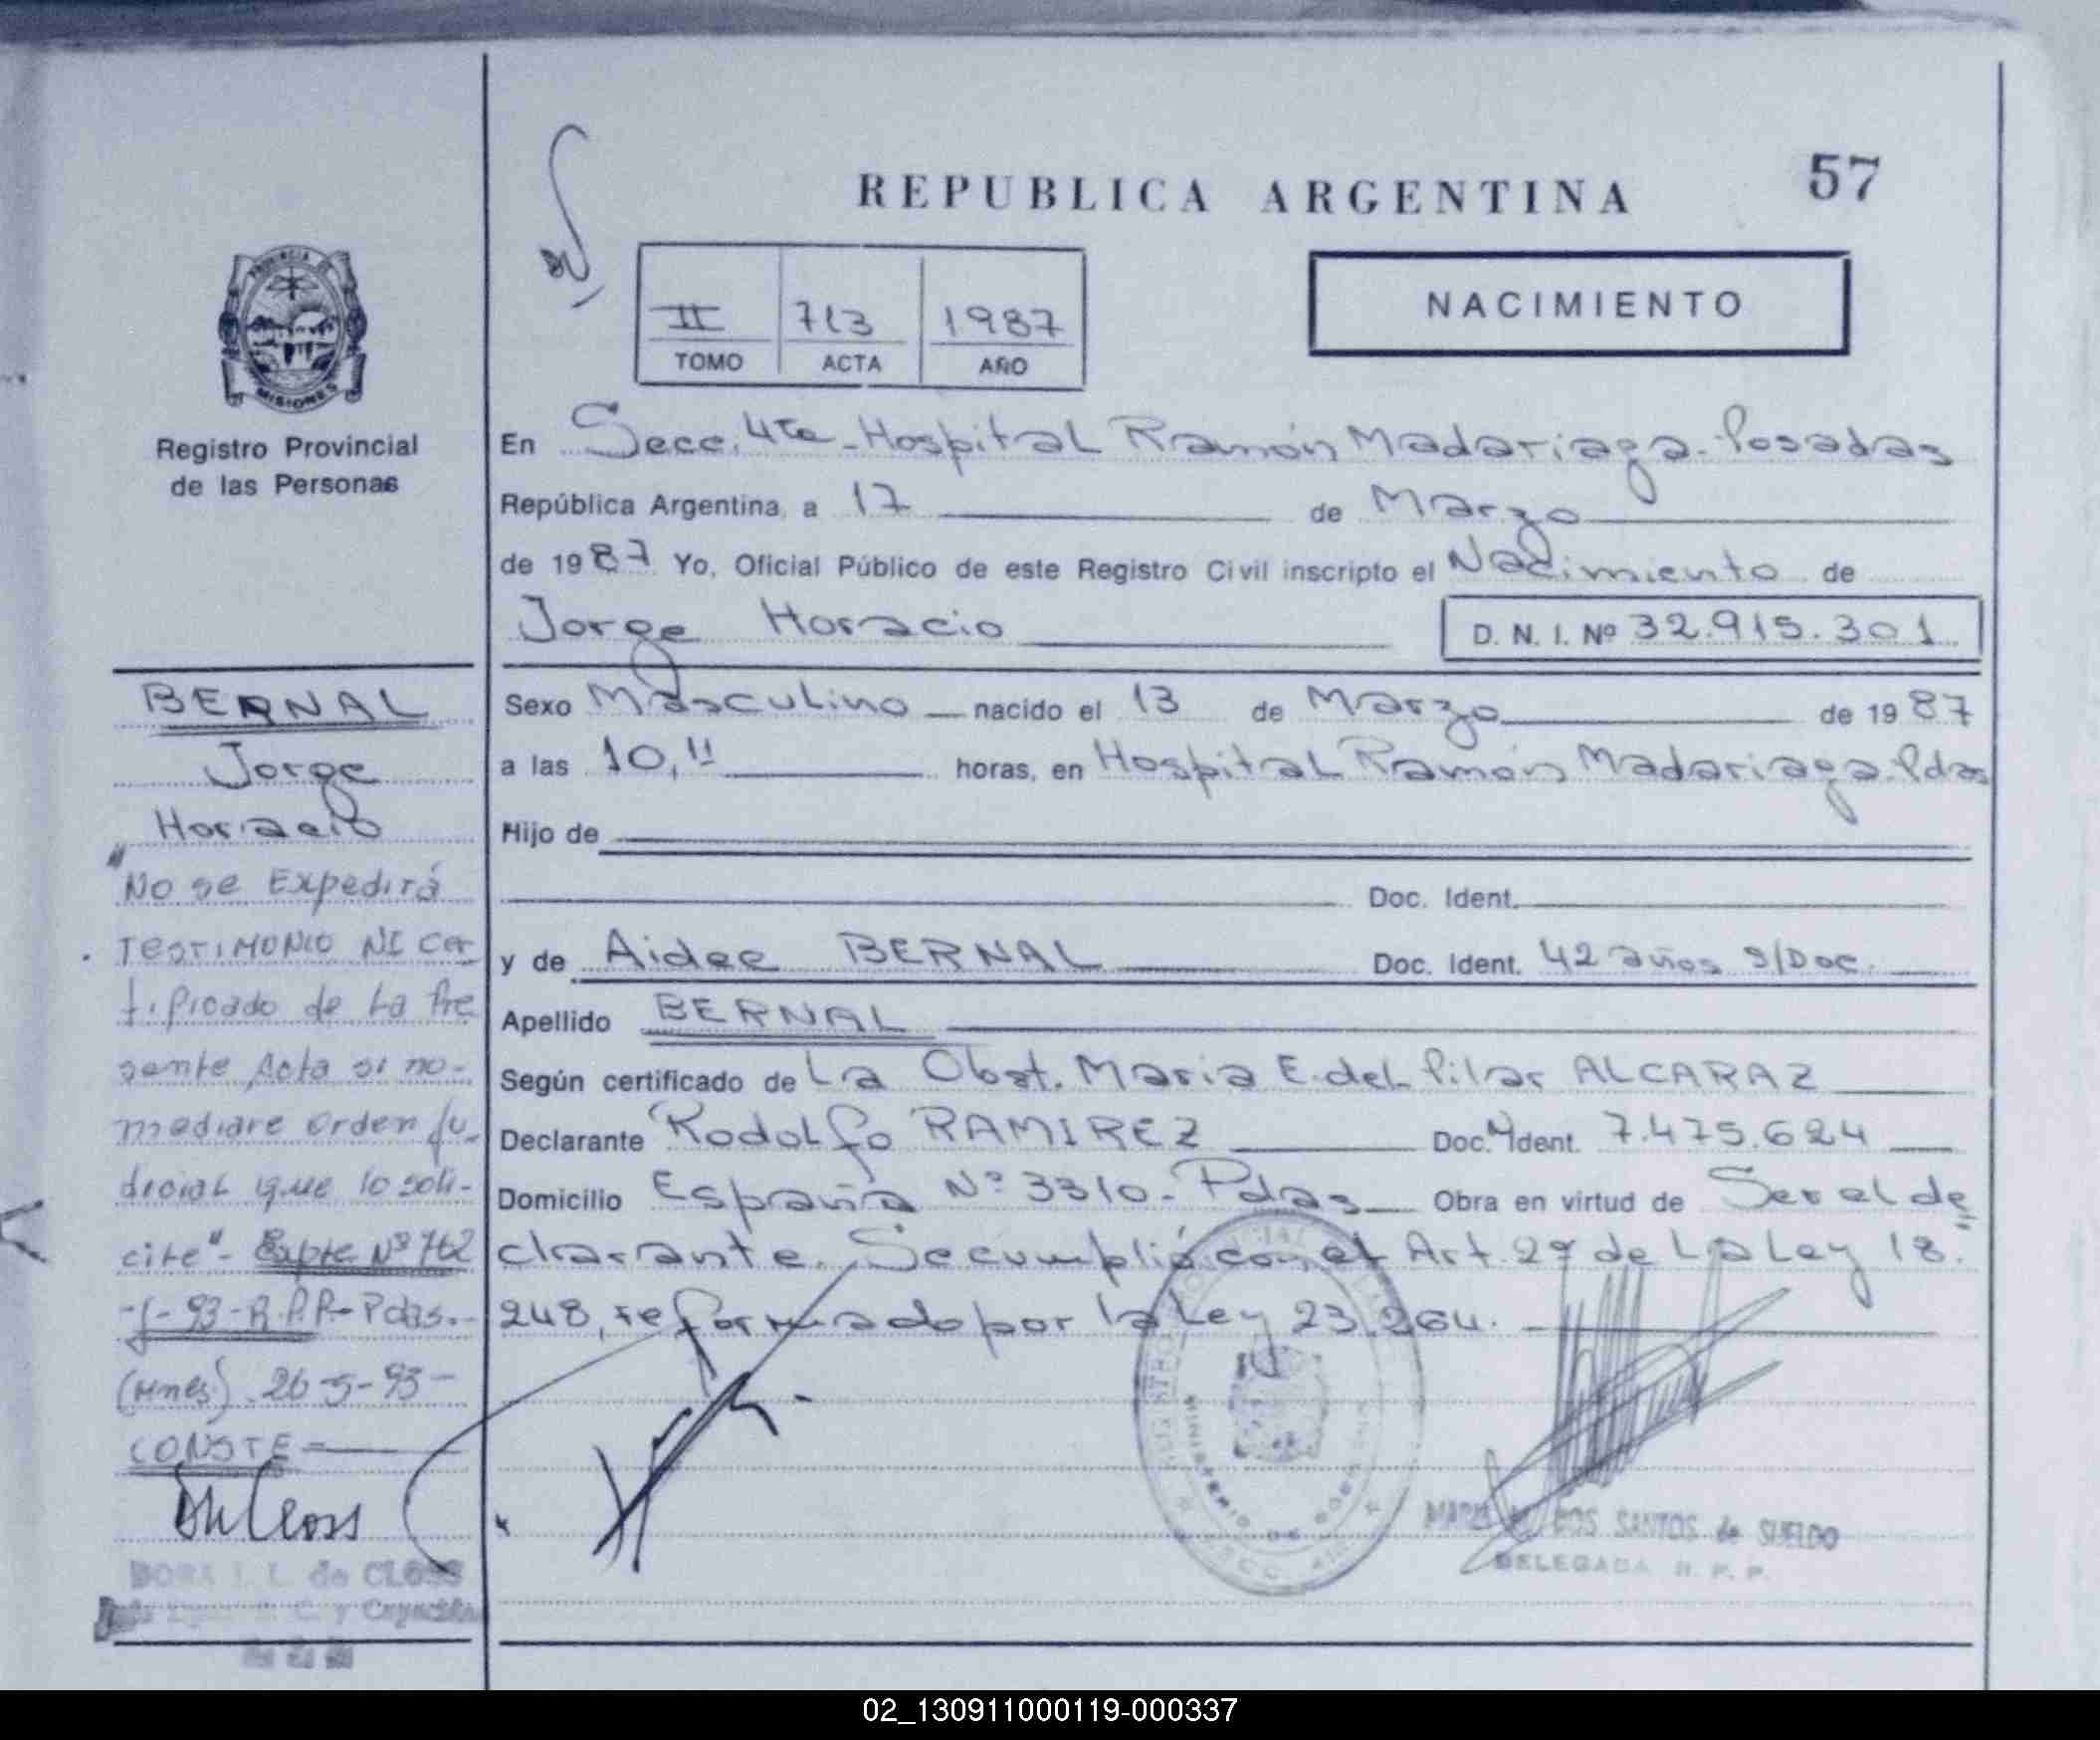 REPUBLICA ARGENTINA
57
II 713 1987
TOMO ACTA AÑO
NACIMIENTO
PROVINCIA DE
MISIONES
Registro Provincial
de las Personas
En Secc. 4ta - Hospital Ramón Madariaga - Posadas
República Argentina, a 17 de Marzo
de 1987 Yo, Oficial Público de este Registro Civil inscripto el Nacimiento de
Jorge Horacio
D. N. I. Nº 32.915.301
Sexo Masculino nacido el 13 de Marzo de 1987
a las 10,11 horas, en Hospital Ramón Madariaga. Pdas
Hijo de
Doc. Ident.
y de Aidee BERNAL Doc. Ident. 42 años s/Doc.
Apellido BERNAL
Según certificado de La Obst. Maria E. del Pilar ALCARAZ
Declarante Rodolfo RAMIREZ Doc. Ident. 7.475.624
Domicilio España Nº 3310 - Pdas Obra en virtud de Ser el de
clarante. Se cumplió con el Art. 2º de La Ley 18.
248, reformado por la Ley 23.264.
BERNAL
Jorge
Horacio
"No se Expedirá
TESTIMONIO NI Cer
tificado de La Pre
sente Acta si no-
mediare orden Ju-
dicial que lo soli-
cite" - Expte Nº 762
-J-93-R.P.P- Pdas.-
(Mnes). 26-5-93-
CONSTE -
DORA I. L. de CLOSS
MINISTERIO DE GOBIERNO
DOS SANTOS de SUELDO
DELEGADA R. P. P.
02_130911000119-000337